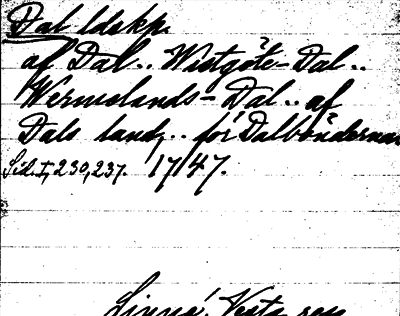 Dal ldskp.
af Dal .. Westgöte-Dal ..
Wermelands-Dal .. af
Dals landz .. för Dalböndernas
Sid. I, 230, 237. 1747.
Linné, Vestg. resa